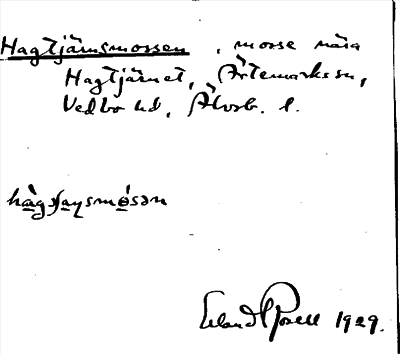 Hagtjärnsmossen, mosse nära
Hagtjärnet, Ärtemarks sn,
Vedbo hd, Älvsb. l.
Erland Rosell 1929.